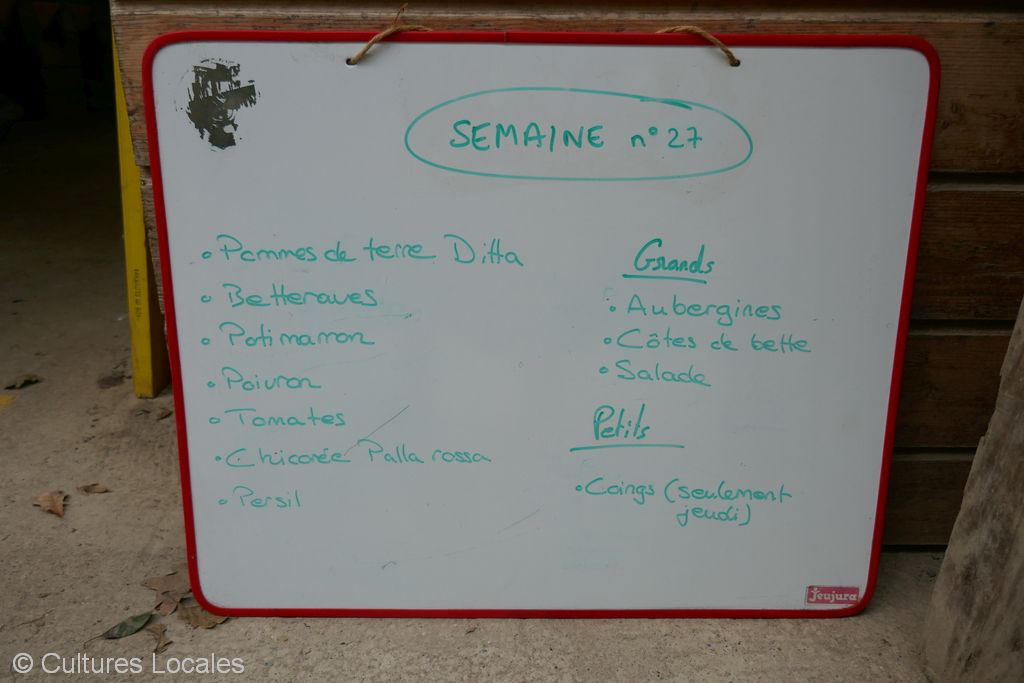 SEMAINE n° 27
• Pommes de terre Ditta
• Betteraves
• Potimarron
• Poivron
• Tomates
• Chicorée Palla rossa
• Persil
Grands
• Aubergines
• Côtes de bette
• Salade
Petits
• Coings (seulement
jeudi)
Jeujura
© Cultures Locales